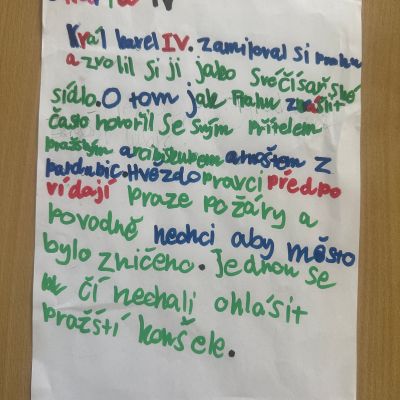 Karla IV
Král karel IV. zamiloval si prahu
a zvolil si ji jako své císařské
sídlo. O tom jak Prahu zvášit
často hovořil se svým přítelem
pražským arcibyskupem arnoštem z
pardubic. Hvězdopravci předpo
vídají praze požáry a
povodně nechci aby město
bylo zničeno. Jednou se
čí nechali ohlásit
pražští konšele.